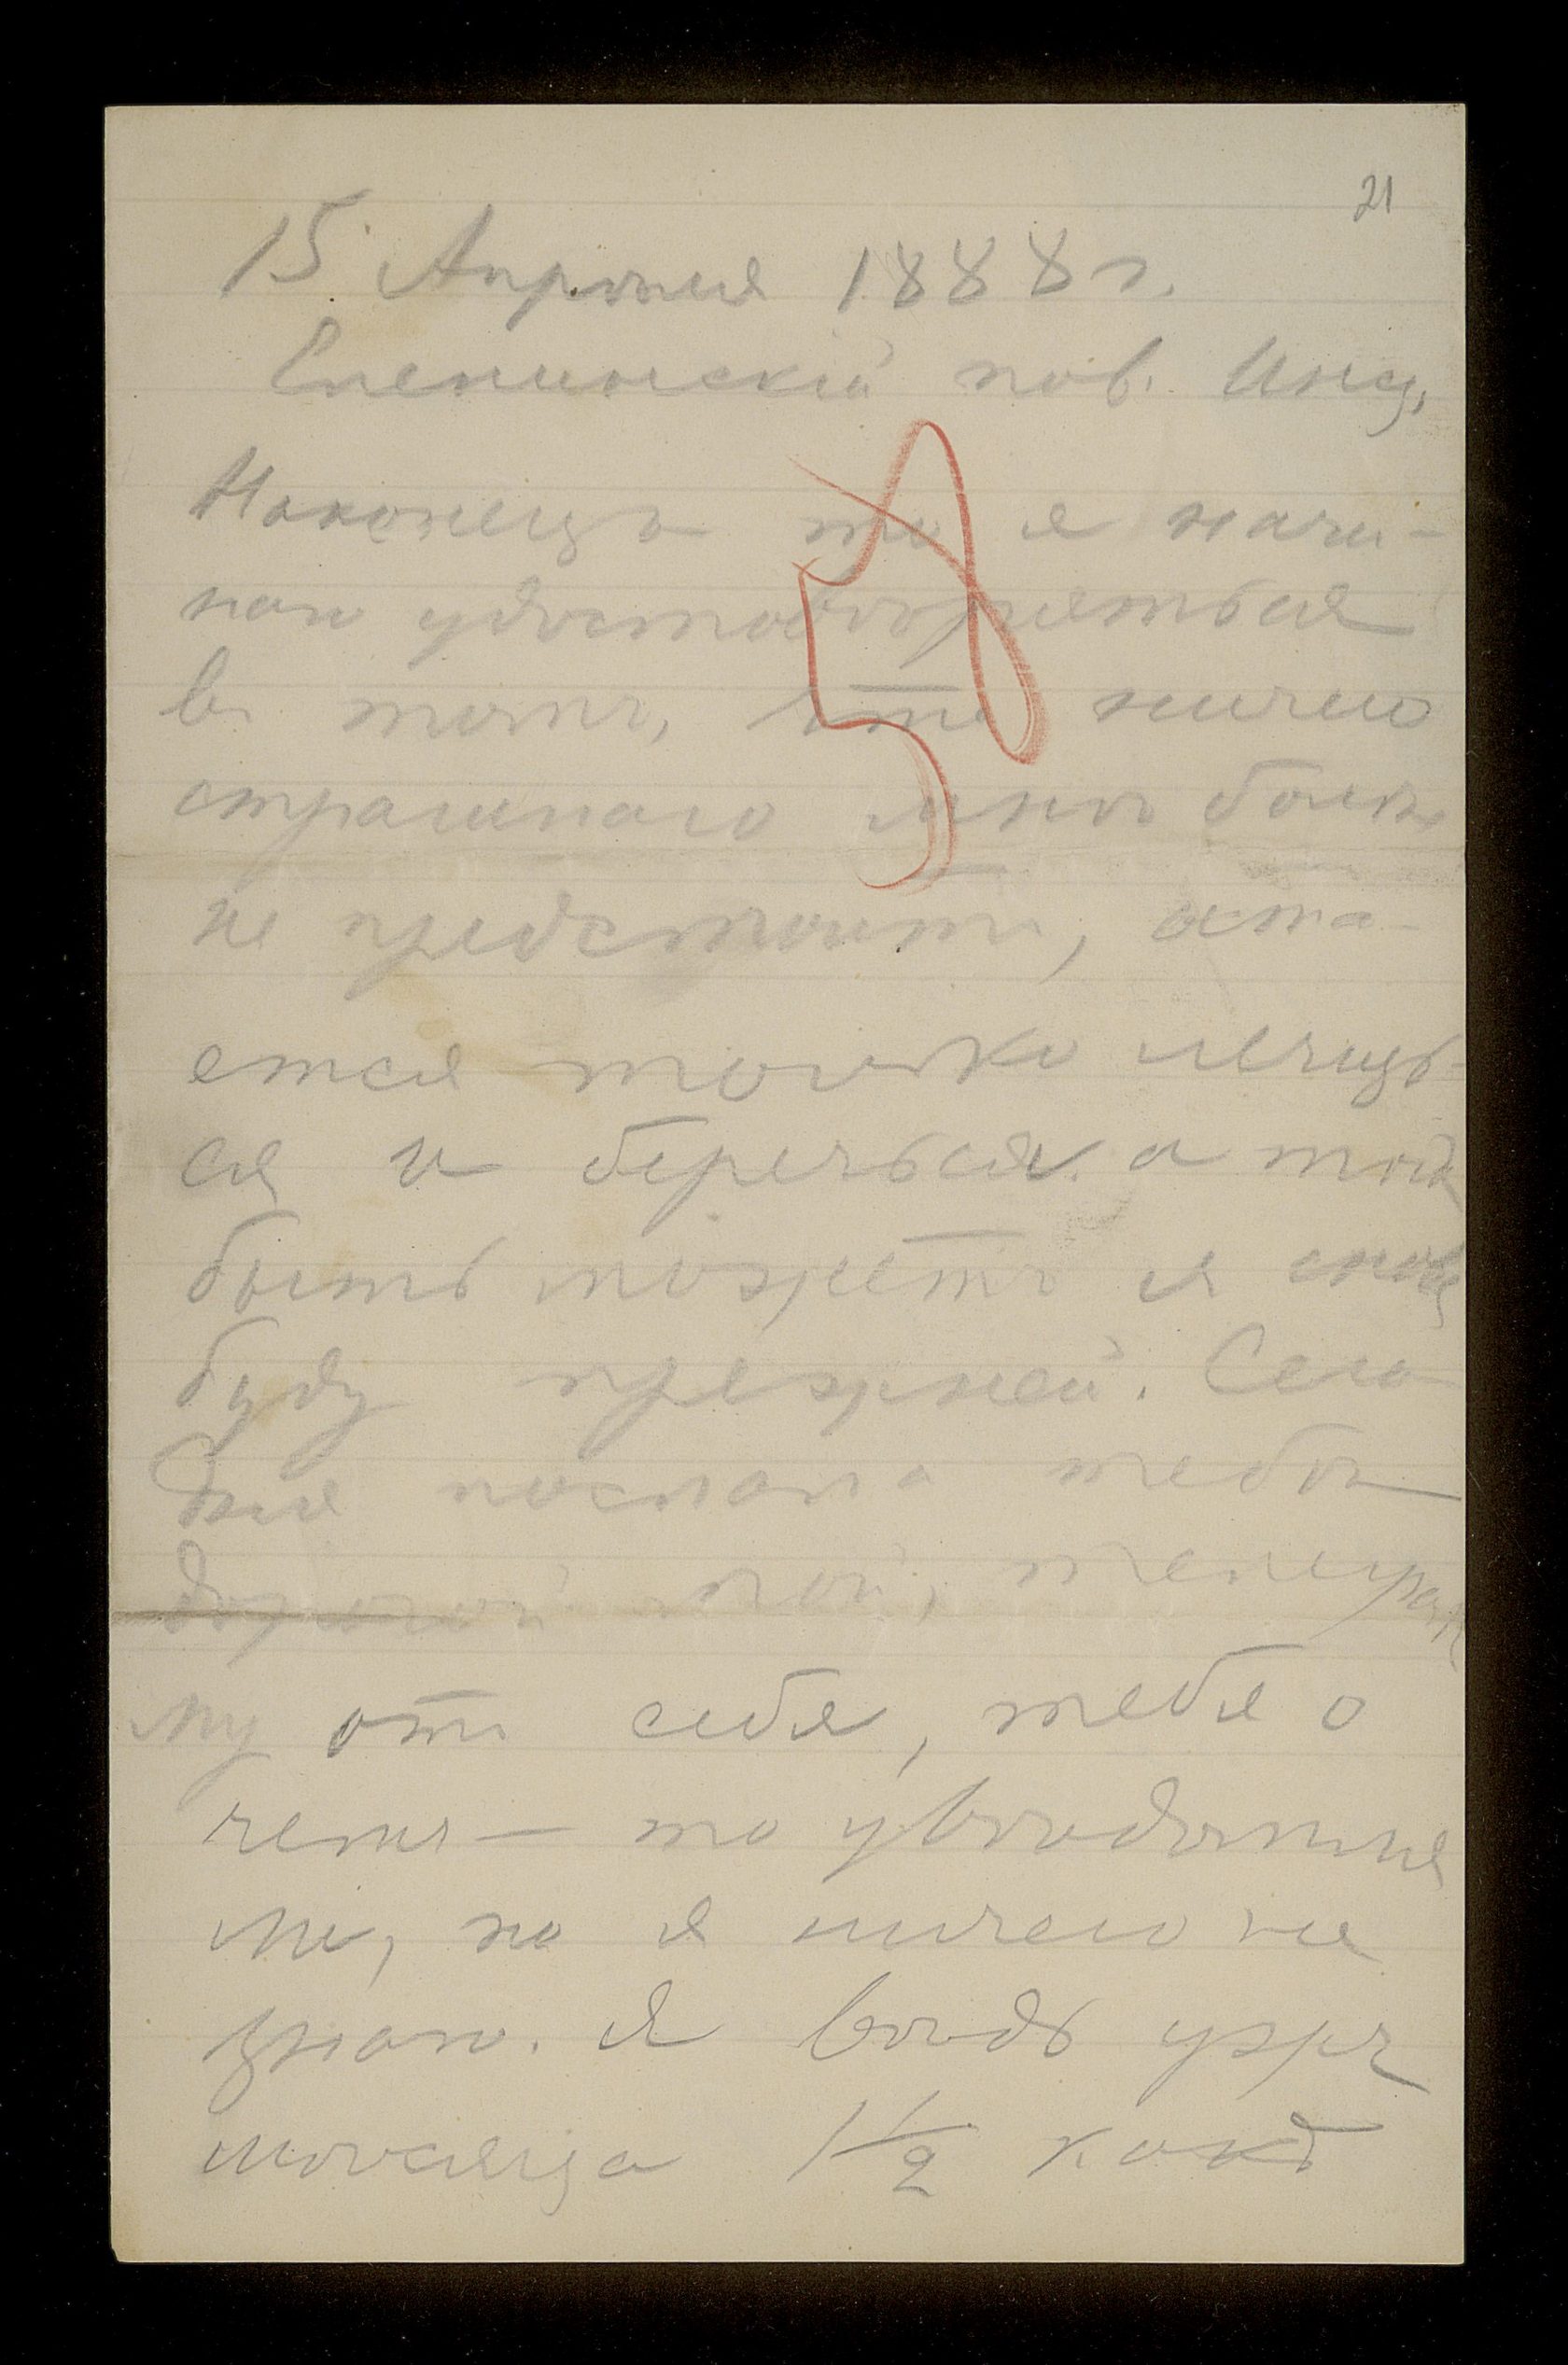 21
15 Апрѣля 1888 г.
Еленинскій пов. Инс.
58
Наконецъ то я начи-
наю удостовѣряться
въ томъ, что ничего
страшнаго мнѣ болѣе
не предстоитъ, оста-
ется только лечить-
ся и беречься а тогда
быть можетъ я снова
буду прежней. Сего-
дня послала тебѣ
дорогой мой, телеграм-
му отъ себя, тебя о
чемъ-то увѣдомля
ли, но я ничего не
знаю. Я вѣдь уже
мѣсяца 1 1/2 какъ